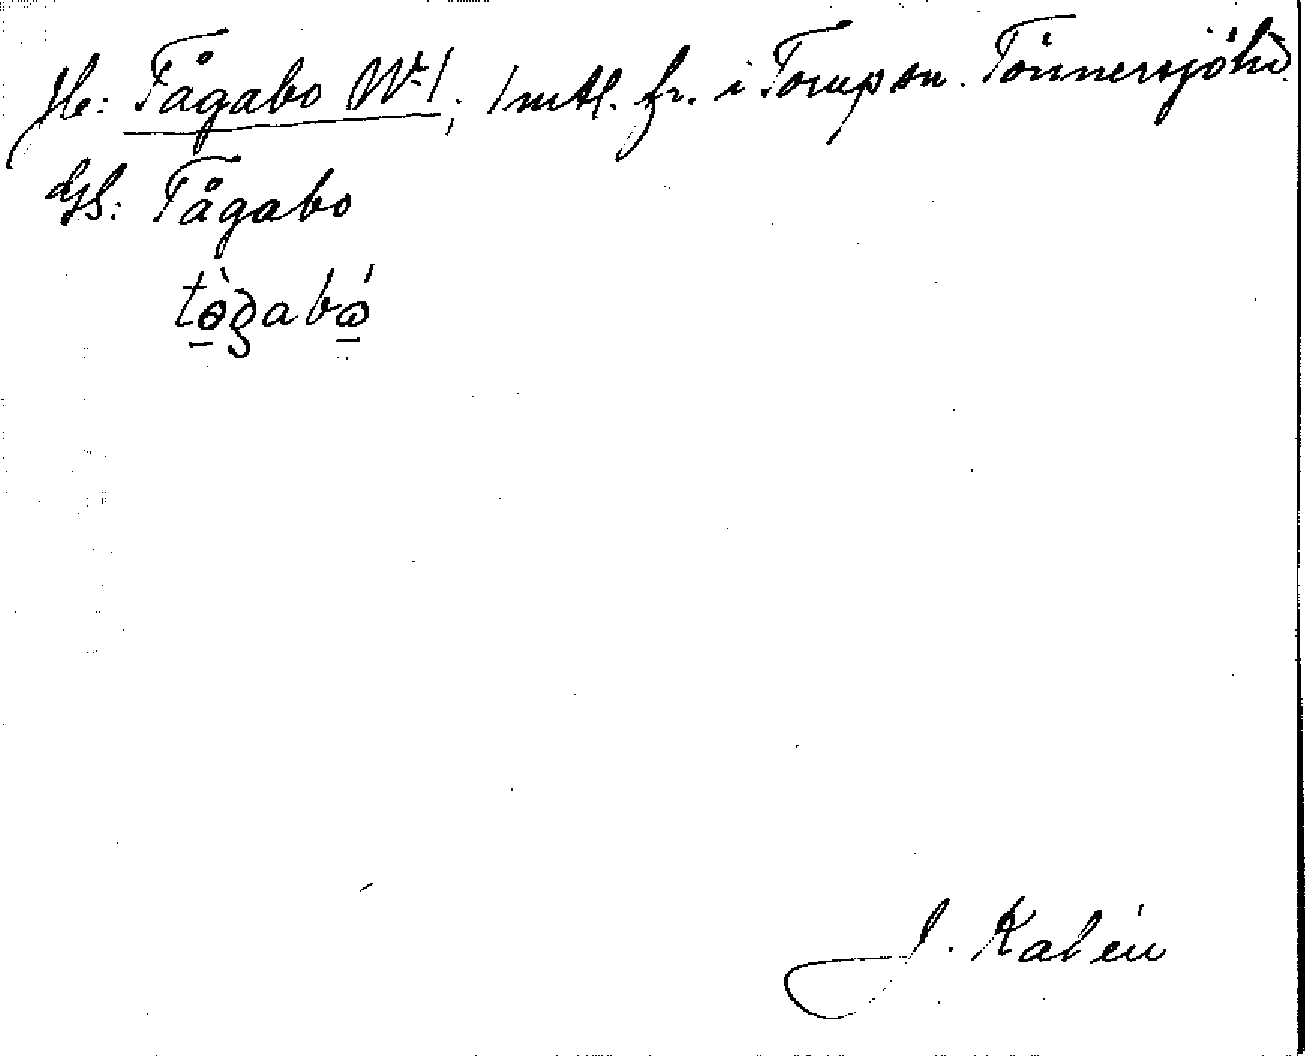 He: Tågabo Nr 1; 1 mtl. fr. i Torup sn. Tönnersjöhd.
GS: Tågabo
tògabó
J. Kalén